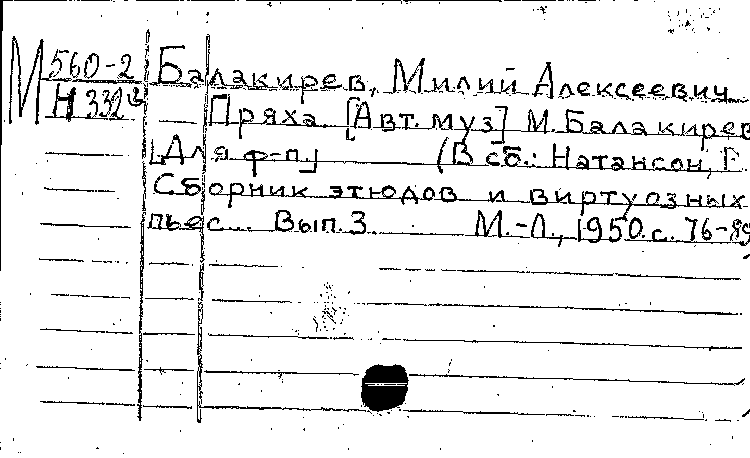 М 560-2 Балакирев, Милий Алексеевич
Н 332 Пряха. [Авт. муз] М. Балакирев
[Для ф-п.] (В сб.: Натансон, В.
Сборник этюдов и виртуозных
пьес... Вып. 3. М.-Л., 1950. с. 76-89